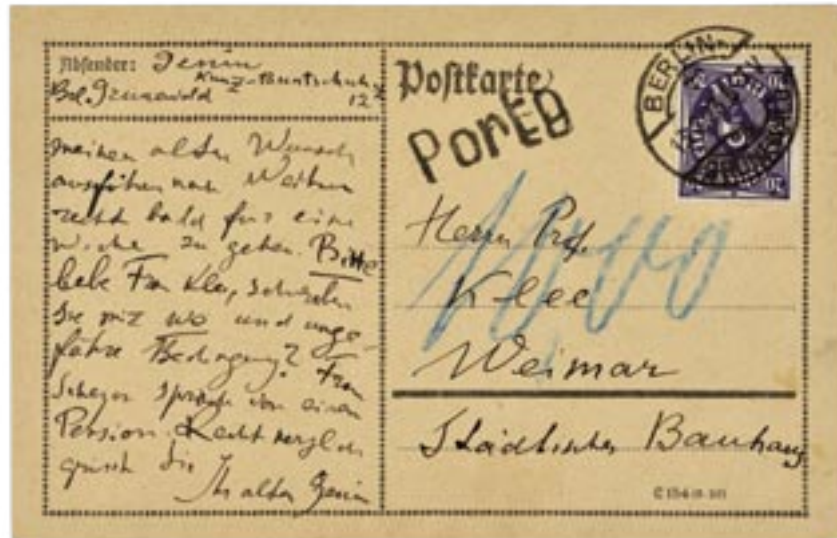 Absender: Jenin
Kunz-Buntschuh
Bln. Grunewald 12
meinen alten Wunsch
ausführen nach Weimar
recht bald für eine
Woche zu gehen. Bitte
liebe Frau Klee, schreiben
Sie mir wo und unge-
fähre Bedingung? Frau
Scheyer sprach von einer
Pension. Recht herzlich
grüsst Sie
Ihr alter Jenin
Postkarte
Porto
BERLIN
20
Herrn Prof.
Klee
Weimar
Städtisches Bauhaus
C 154